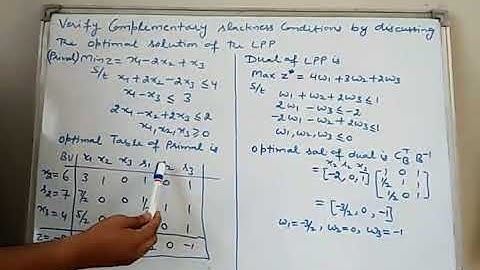 Verify Complementary slackness Conditions by discussing
the optimal solution of the LPP
(Primal) Min z = x1 - 2x2 + x3
S/t x1 + 2x2 - 2x3 ≤ 4
x1 - x3 ≤ 3
2x1 - x2 + 2x3 ≤ 2
x1, x2, x3 ≥ 0
Optimal Table of Primal is
BV x1 x2 x3 s1 s2 s3
x2 = 6 3 1 0 0 1
s2 = 7 7/2 0 0 1/2 1 1
x3 = 4 5/2 0 1
0 -1
Dual of LPP is
Max z* = 4w1 + 3w2 + 2w3
S/t w1 + w2 + 2w3 ≤ 1
2w1 - w3 ≤ -2
-2w1 - w2 + 2w3 ≤ 1
w1, w2, w3 ≤ 0
optimal sol of dual is C_B^T B^-1
x2 s2 x3
= [-2, 0, 1] [1 0 1
1/2 1 1
1/2 0 1]
= [-3/2, 0, -1]
w1 = -3/2, w2 = 0, w3 = -1